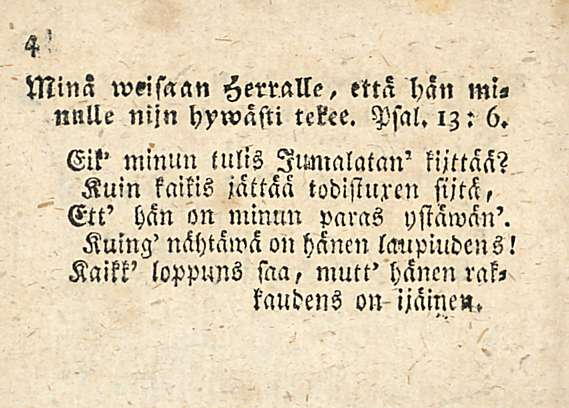 4
Minä weisaan Herralle, että hän mi-
nulle nijn hywästi tekee. Psal. 13: 6.
Eik' minun tulis Jumalatan' kijttää?
Kuin kaikis jättää todistuxen sijtä,
Ett' hän on minun paras ystäwän'.
Kuing' nähtäwä on hänen laupiudens!
Kaikk' loppuns saa, mutt' hänen rak-
kaudens on ijäinen.